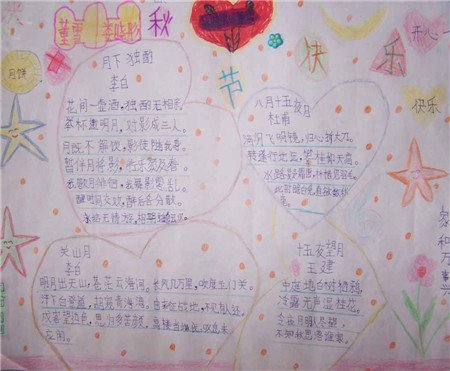 董雪 李晓彤
中秋节快乐
开心一
月饼
快乐
月下独酌
李白
花间一壶酒，独酌无相亲。
举杯邀明月，对影成三人。
月既不解饮，影徒随我身。
暂伴月将影，行乐须及春。
我歌月徘徊，我舞影零乱。
醒时同交欢，醉后各分散。
永结无情游，相期邈云汉。
八月十五夜月
杜甫
满月飞明镜，归心折大刀。
转蓬行地远，攀桂仰天高。
水路疑霜雪，林栖见羽毛。
此时瞻白兔，直欲数秋毫。
关山月
李白
明月出天山，苍茫云海间。长风几万里，吹度玉门关。
汉下白登道，胡窥青海湾。由来征战地，不见有人还。
戍客望边色，思归多苦颜。高楼当此夜，叹息未
应闲。
十五夜望月
王建
中庭地白树栖鸦，
冷露无声湿桂花。
今夜月明人尽望，
不知秋思落谁家。
家和万事